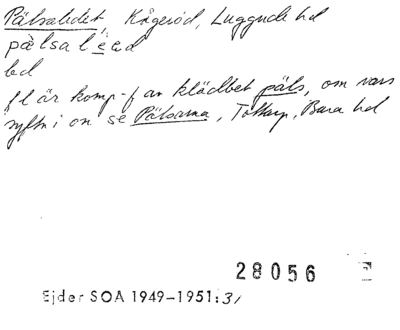 Pälsaledet Kågeröd, Luggude hd
pälsaleed
bd
fl är komp-f av klädbet päls, om vars
syftn i on se Pälsarna, Tottarp, Bara hd
28056
Ejder SOA 1949-1951:31